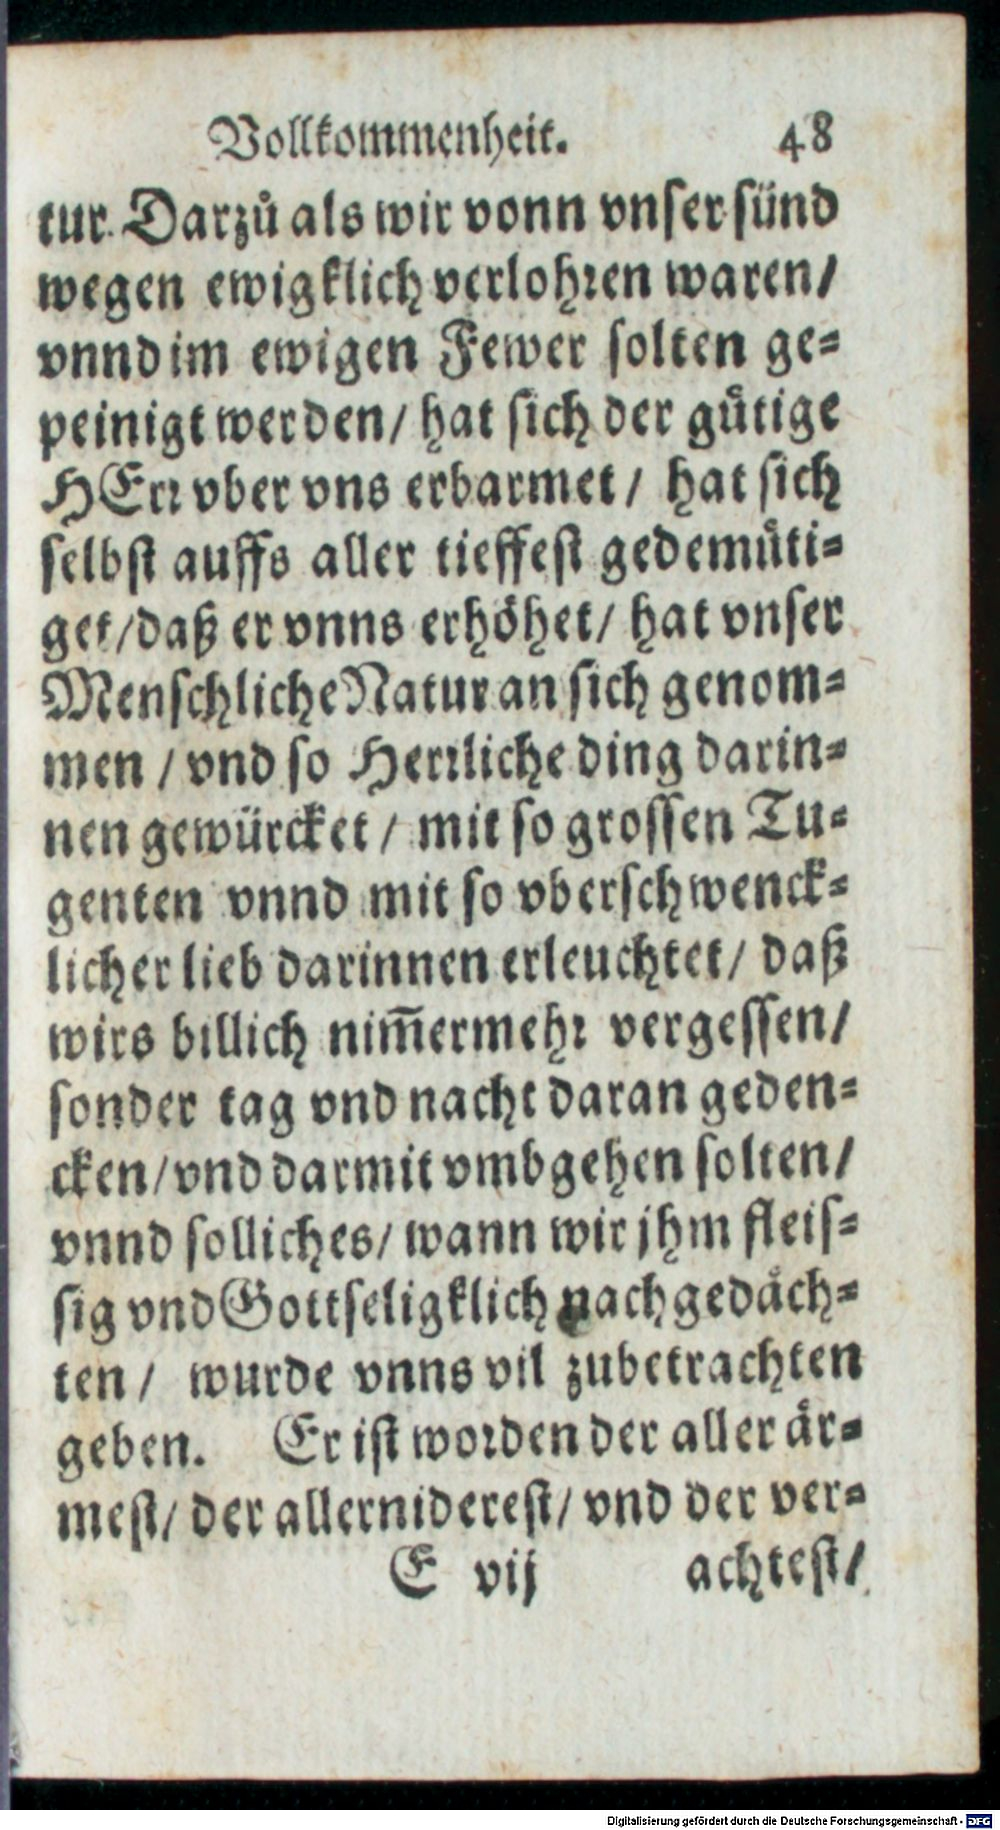 Vollkommenheit. 48
tur. Darzů als wir vonn vnser sünd
wegen ewigklich verlohꝛen waren/
vnnd im ewigen Fewer solten ge-
peinigt werden/ hat sich der guͤtige
HErꝛ vber vns erbarmet/ hat sich
selbst auffs aller tieffest gedemuͤti-
get/daß er vnns erhoͤhet/ hat vnser
Menschliche Natur an sich genom-
men / vnd so Herꝛliche ding darin-
nen gewürcket / mit so grossen Tu-
genten vnnd mit so vberschwenck-
licher lieb darinnen erleuchtet/ daß
wirs billich nim̄ermehꝛ vergessen/
sonder tag vnd nacht daran geden-
cken/vnd darmit vmbgehen solten/
vnnd solliches/ wann wir jhm fleis-
sig vnd Gottseligklich nachgedaͤch-
ten/ wurde vnns vil zubetrachten
geben. Er ist woꝛden der aller aͤr-
mest/ der allerniderest/ vnd der ver-
E vij achtest/
Digitalisierung gefördert durch die Deutsche Forschungsgemeinschaft - DFG